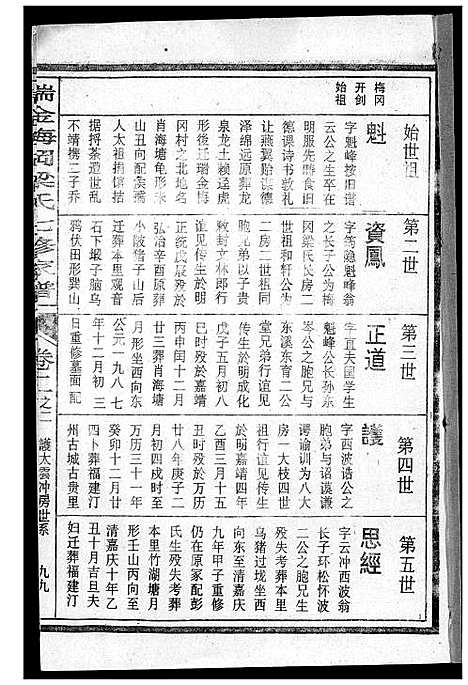 梅冈
开剑
始祖
始世祖
魁
字魁峰按旧谱
云公之生卒在
明服先畴食旧
德课诗书敦礼
让燕翼贻谋德
泽绵远原葬龙
泉龙土赖迳虎
形後迁瑞金梅
冈村之北地名
肖海塘龟形未
山丑向配侯孺
人太祖捐馆拮
据捋荼造世乱
不靖携二子乔
第二世
資鳳
字筠隐魁峰翁
之长子公为梅
冈梁氏长房二
世祖和轩公为
二房二世祖同
胞兄弟以子贵
敕封文林郎行
谊见传生於明
正统戊辰殁於
弘治辛酉原葬
小陂借子山后
迁葬本里观音
石下蝦子脑乌
鸦伏田形巽山
第三世
正道
字直夫国学生
魁峰公长孙东
岑公之胞兄与
东溪东育二公
堂兄弟行谊见
传生於明成化
戊子五月初五
巳时殁於嘉靖
丙申闰十二月
廿三葬肖海塘
月形坐西向东
公元一九八七
年十二月初三
日重修墓面記
第四世
護
字西波诰公之
胞弟与诏谟谦
谔谕训为八大
房一大枝四世
祖行谊见传生
於明嘉靖四年
乙酉三月十五
丑时殁於万历
廿八年庚子二
月初四戌时至
万历三十一年
癸卯十二月廿
四卜葬福建汀
州古城古贵里
第五世
思經
字云冲西波翁
长子环松怀波
二公之胞兄生
殁失考葬本里
乌猪过垅坐西
向东至清嘉庆
九年甲子重修
仍在原冢配彭
氏生殁失考葬
本里竹湖塘月
形壬山丙向至
清嘉庆十年乙
丑十月吉旦夫
妇迁葬福建汀
瑞金梅冈梁氏七修家谱
卷二之二
護大雲冲房世系
九九